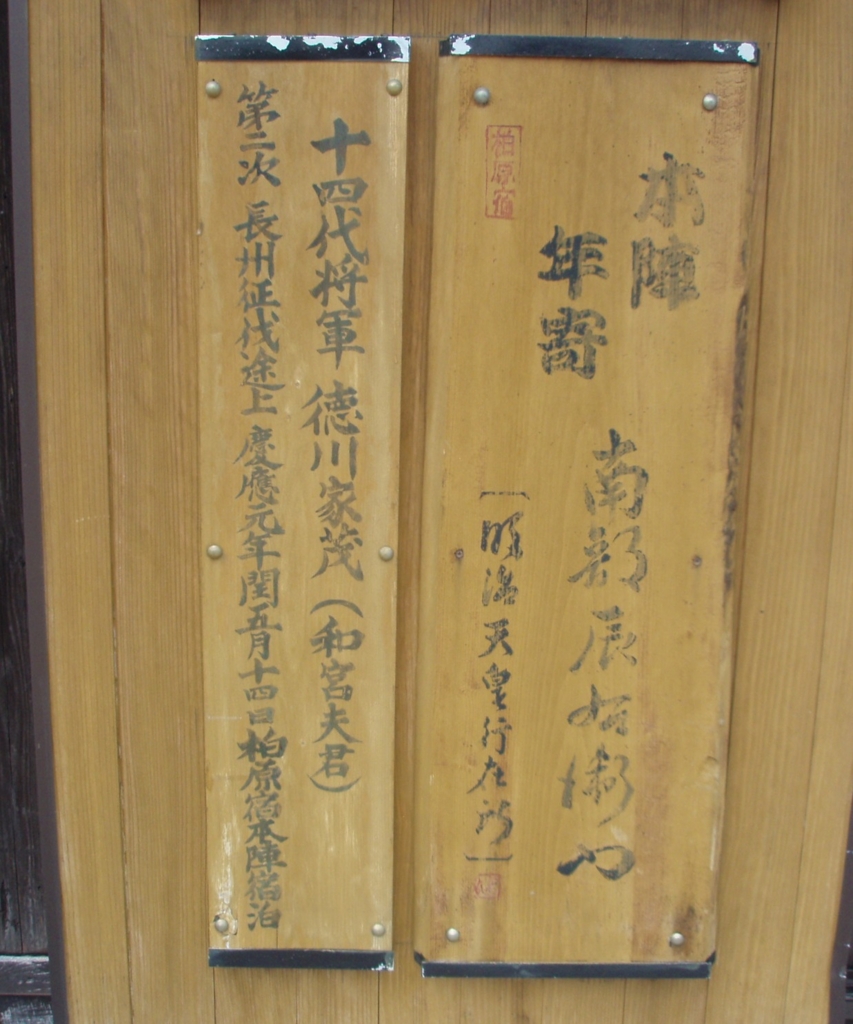 本陣
年寄
南部辰右衛門
〔明治天皇行在所〕
柏原宿
十四代将軍 徳川家茂（和宮夫君）
第二次 長州征伐途上 慶應元年閏五月十四日柏原宿本陣宿泊